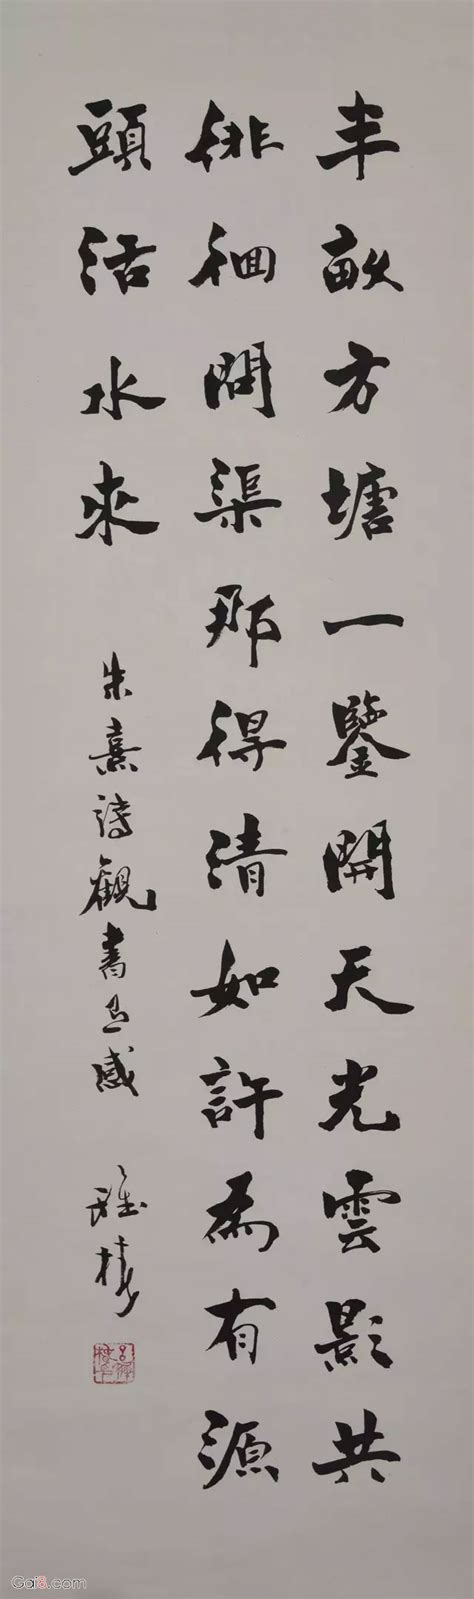 半畝方塘一鑒開天光雲影共
徘徊問渠那得清如許為有源
頭活水來
朱熹詩觀書有感
Gai8.com